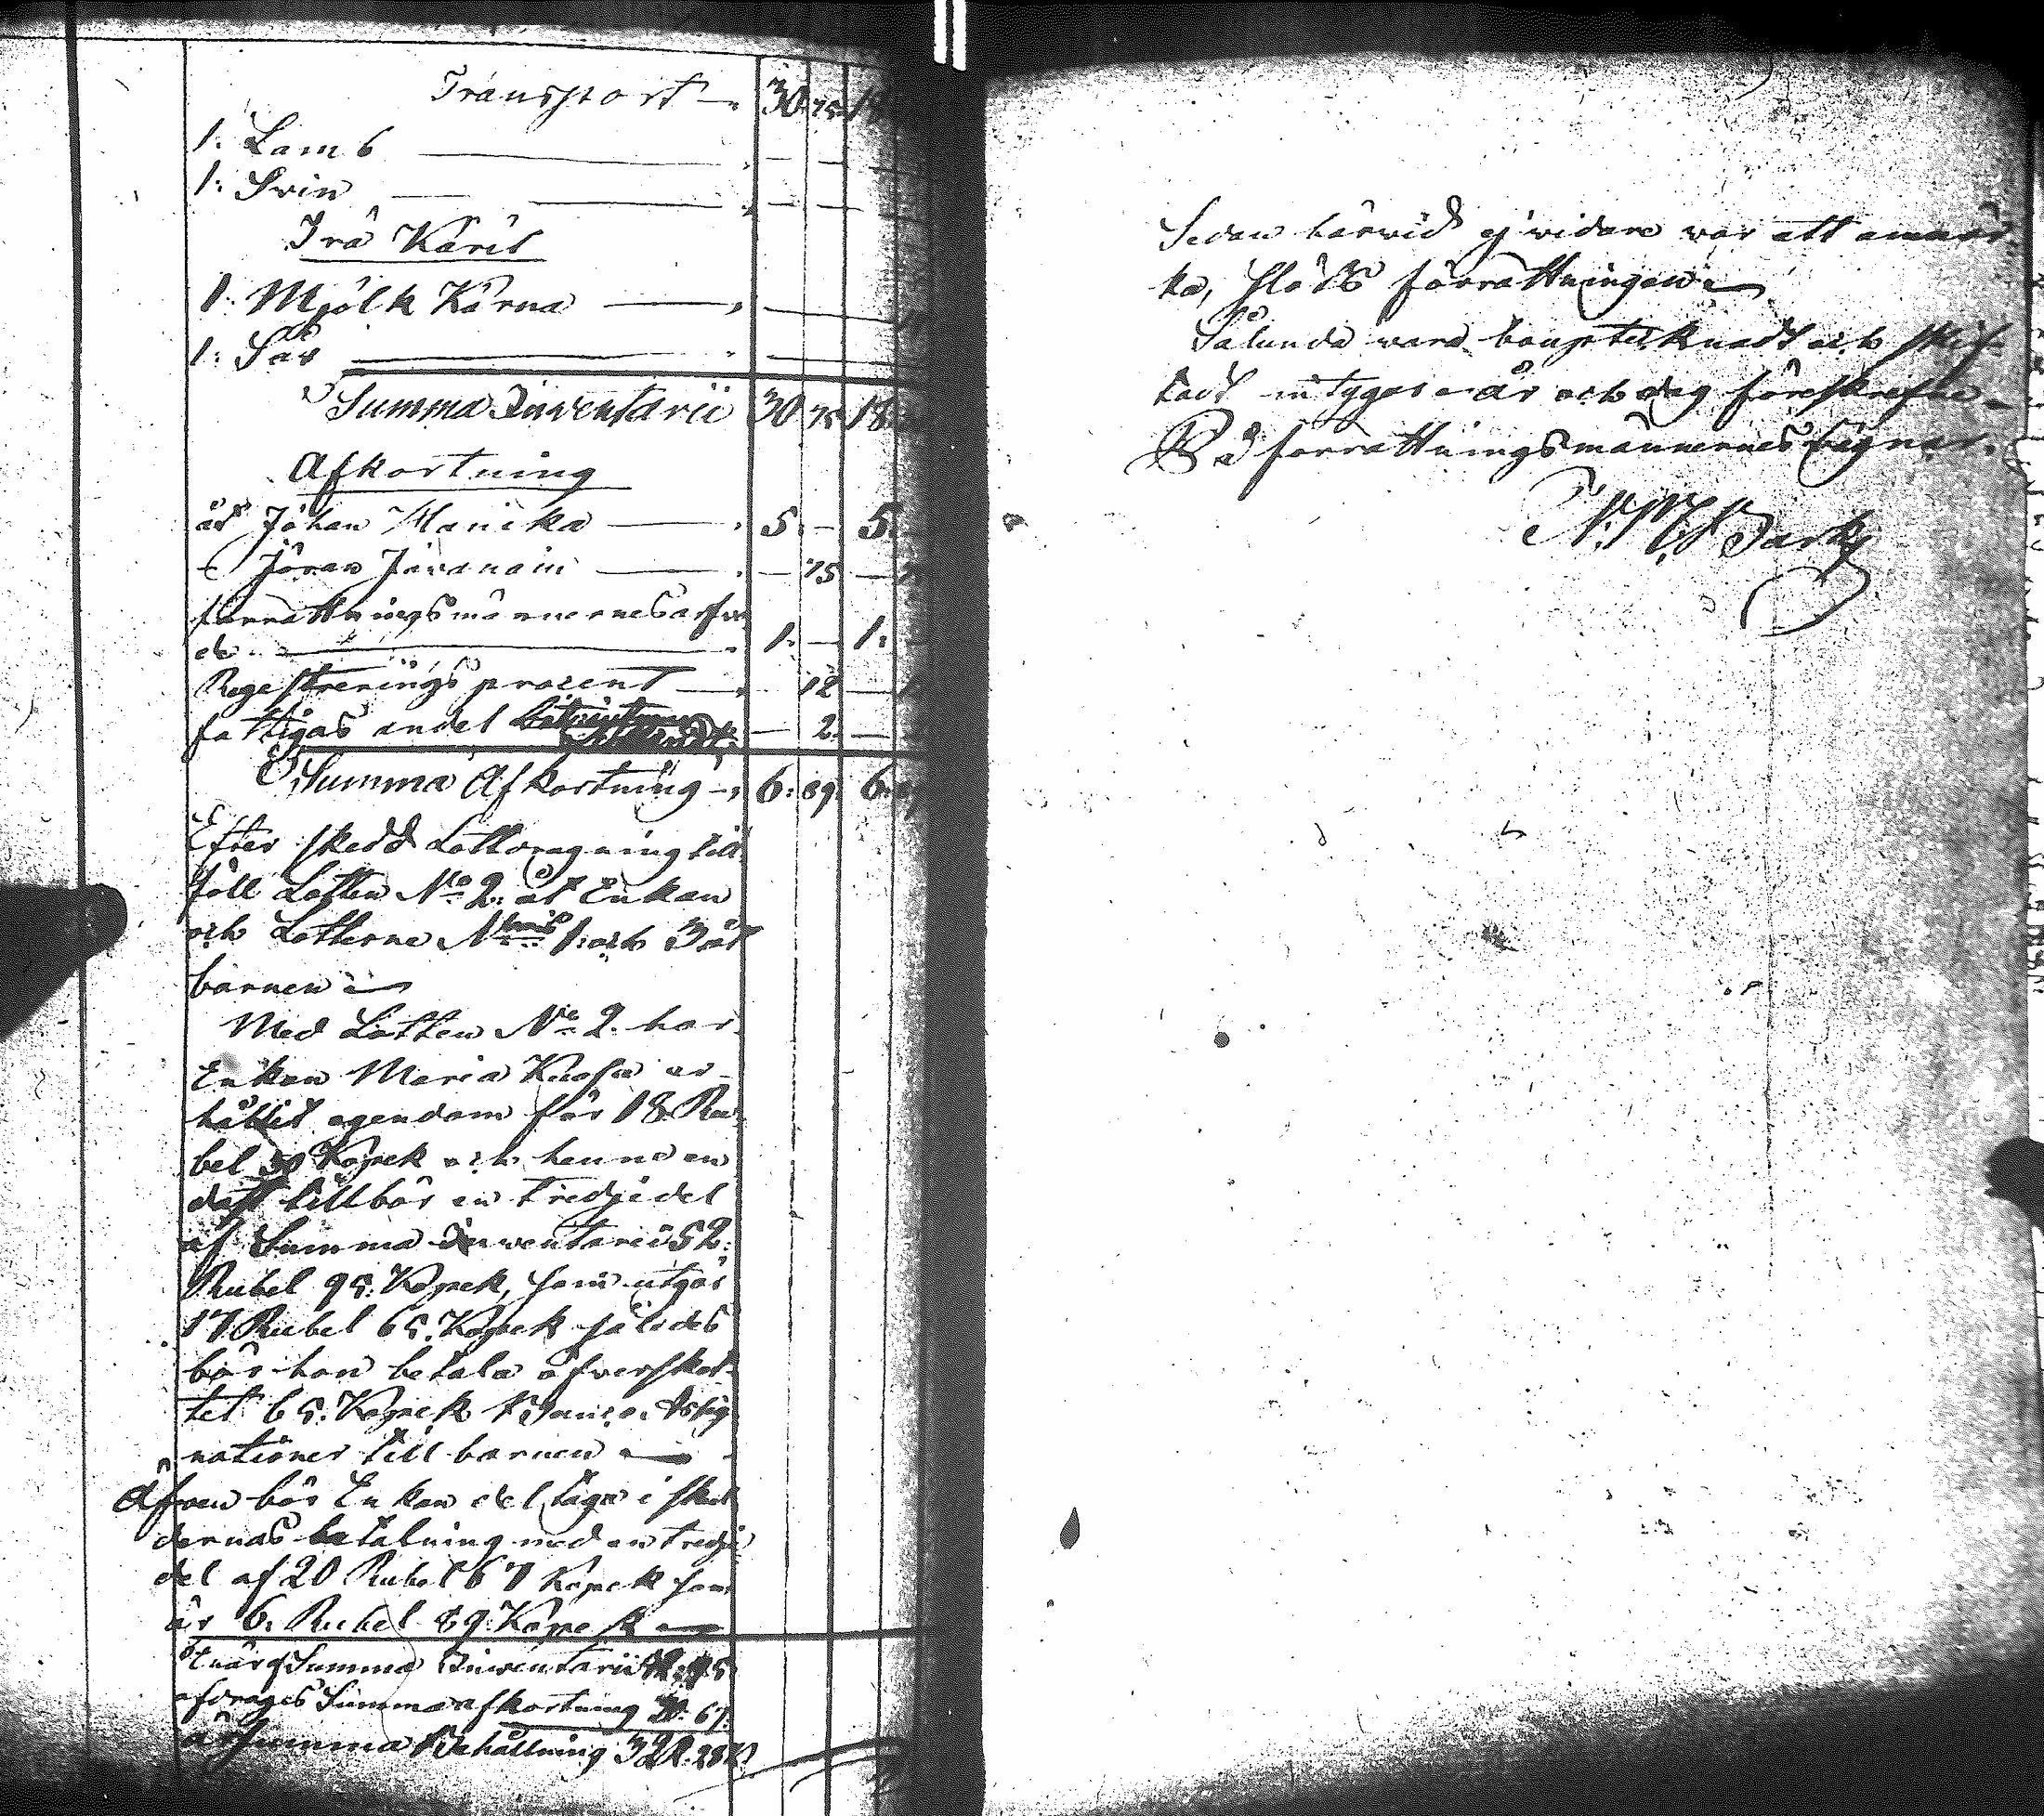 Transport 30 75 18
1: Lamb
1: Svin
Trä Käril
1. Mjölk Kärna
1: Så
Summa Inventarii 30 75 18
Afkortning
åt Johan Manika 5. — 5.
Jöran — 75 —
förrättningsmännernes arfvo
de 1. — 1:
Regestrerings prozent 12 —
fattigas andel — 2. —
Summa Afkortning 6: 89. 6:
Efter skedd Lottdragning till
föll Lotten No 2: åt Enkan
och Lotterne 1: och 3 åt
barnen
Med Lotten No 2. har
Enkan Maria er
hållit egendom för 18. Ru
bel 30 Kopek och henne en
dast tillhör en tredjedel
af Summa Inventarii 52:
Rubel 95. Kopek, som utgör
17 Rubel 65. Kopek således
bör hon betala öfverskot
tet 65. Kopek Assig
nationer till barnen
Äfven bör Enkan deltaga i skul
dernas betalning med en tredje
del af 20 Rubel 67 Kopek som
är 6. Rubel 89. Kopek
När Summa Inventarii 52: 95
afdrages Summa afkortning 20. 67.
är Summa Behållning 32 R. 28 K.
Sedan härvid ej vidare var att anmär
ka, slöts förrättningen
Sålunda vara bouptecknadt och skif
tadt intygar år och dag föreskrefne
På förrättningsmännernes vägnar.